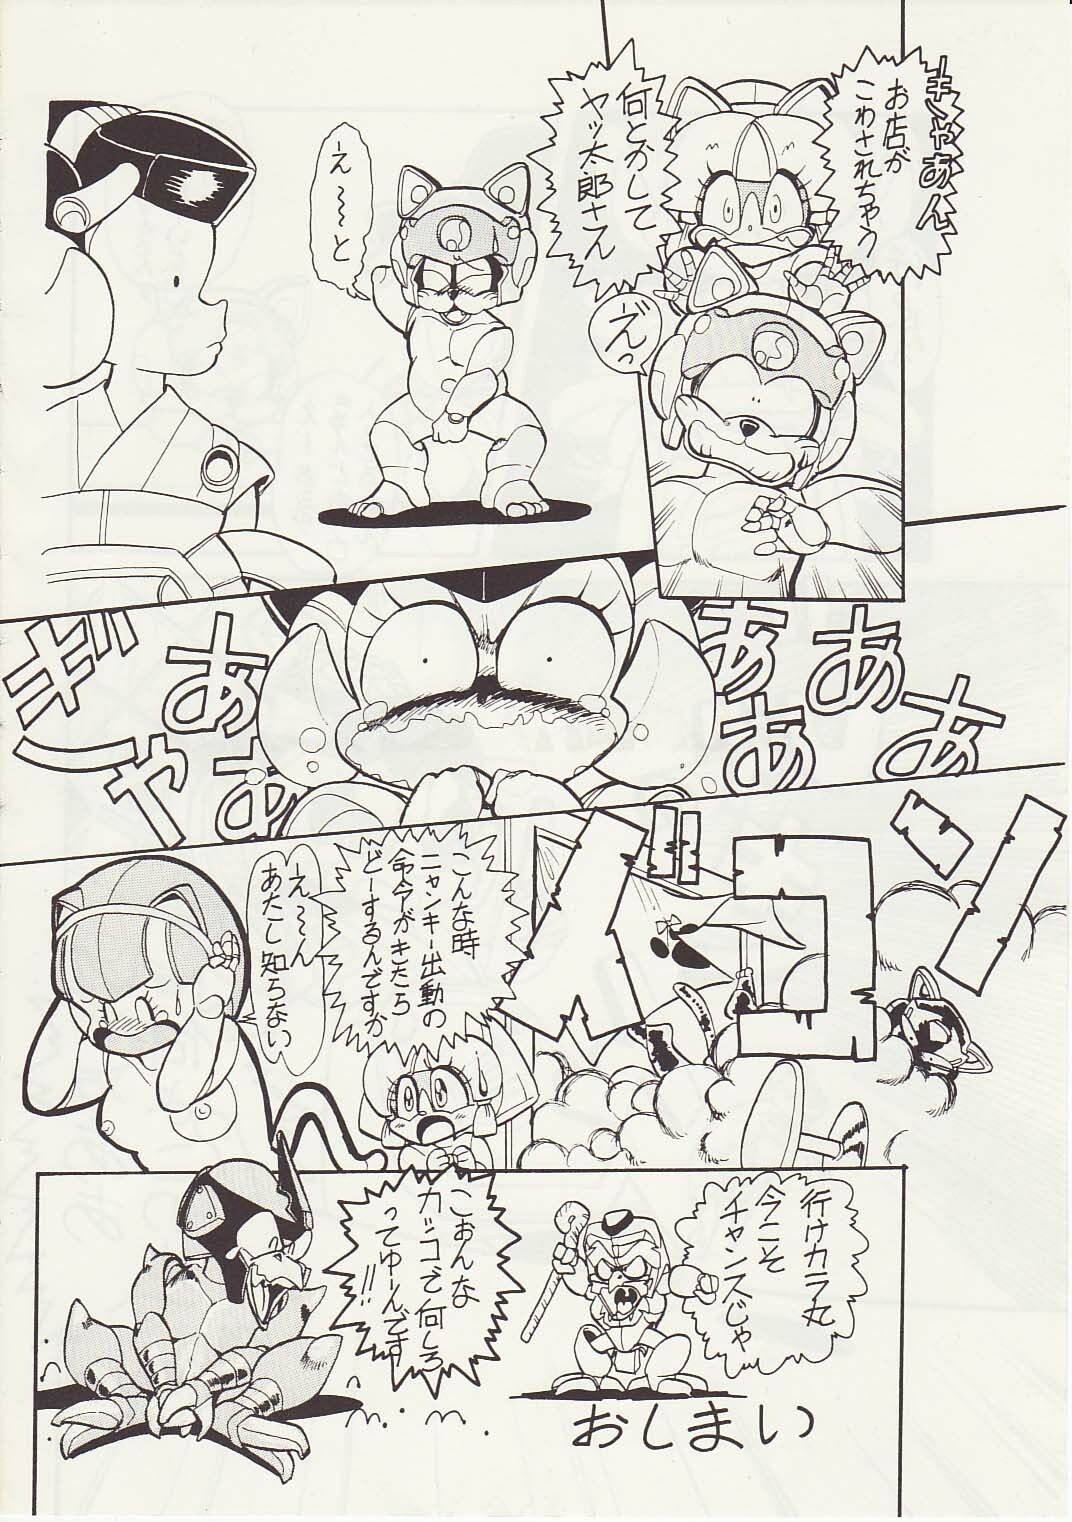 きゃあん
お店が
こわされちゃう
何とかして
ヤッ太郎さん
えっ
え〜〜と
ぎゃあああああああ
ドコン
こんな時
ニャンキー出動の
命令がきたら
どーするんですか
え〜〜ん
あたし知らない
行けカラ丸
今こそ
チャンスじゃ
こぉんな
カッコで何しろ
ってゆーんです
!!
おしまい